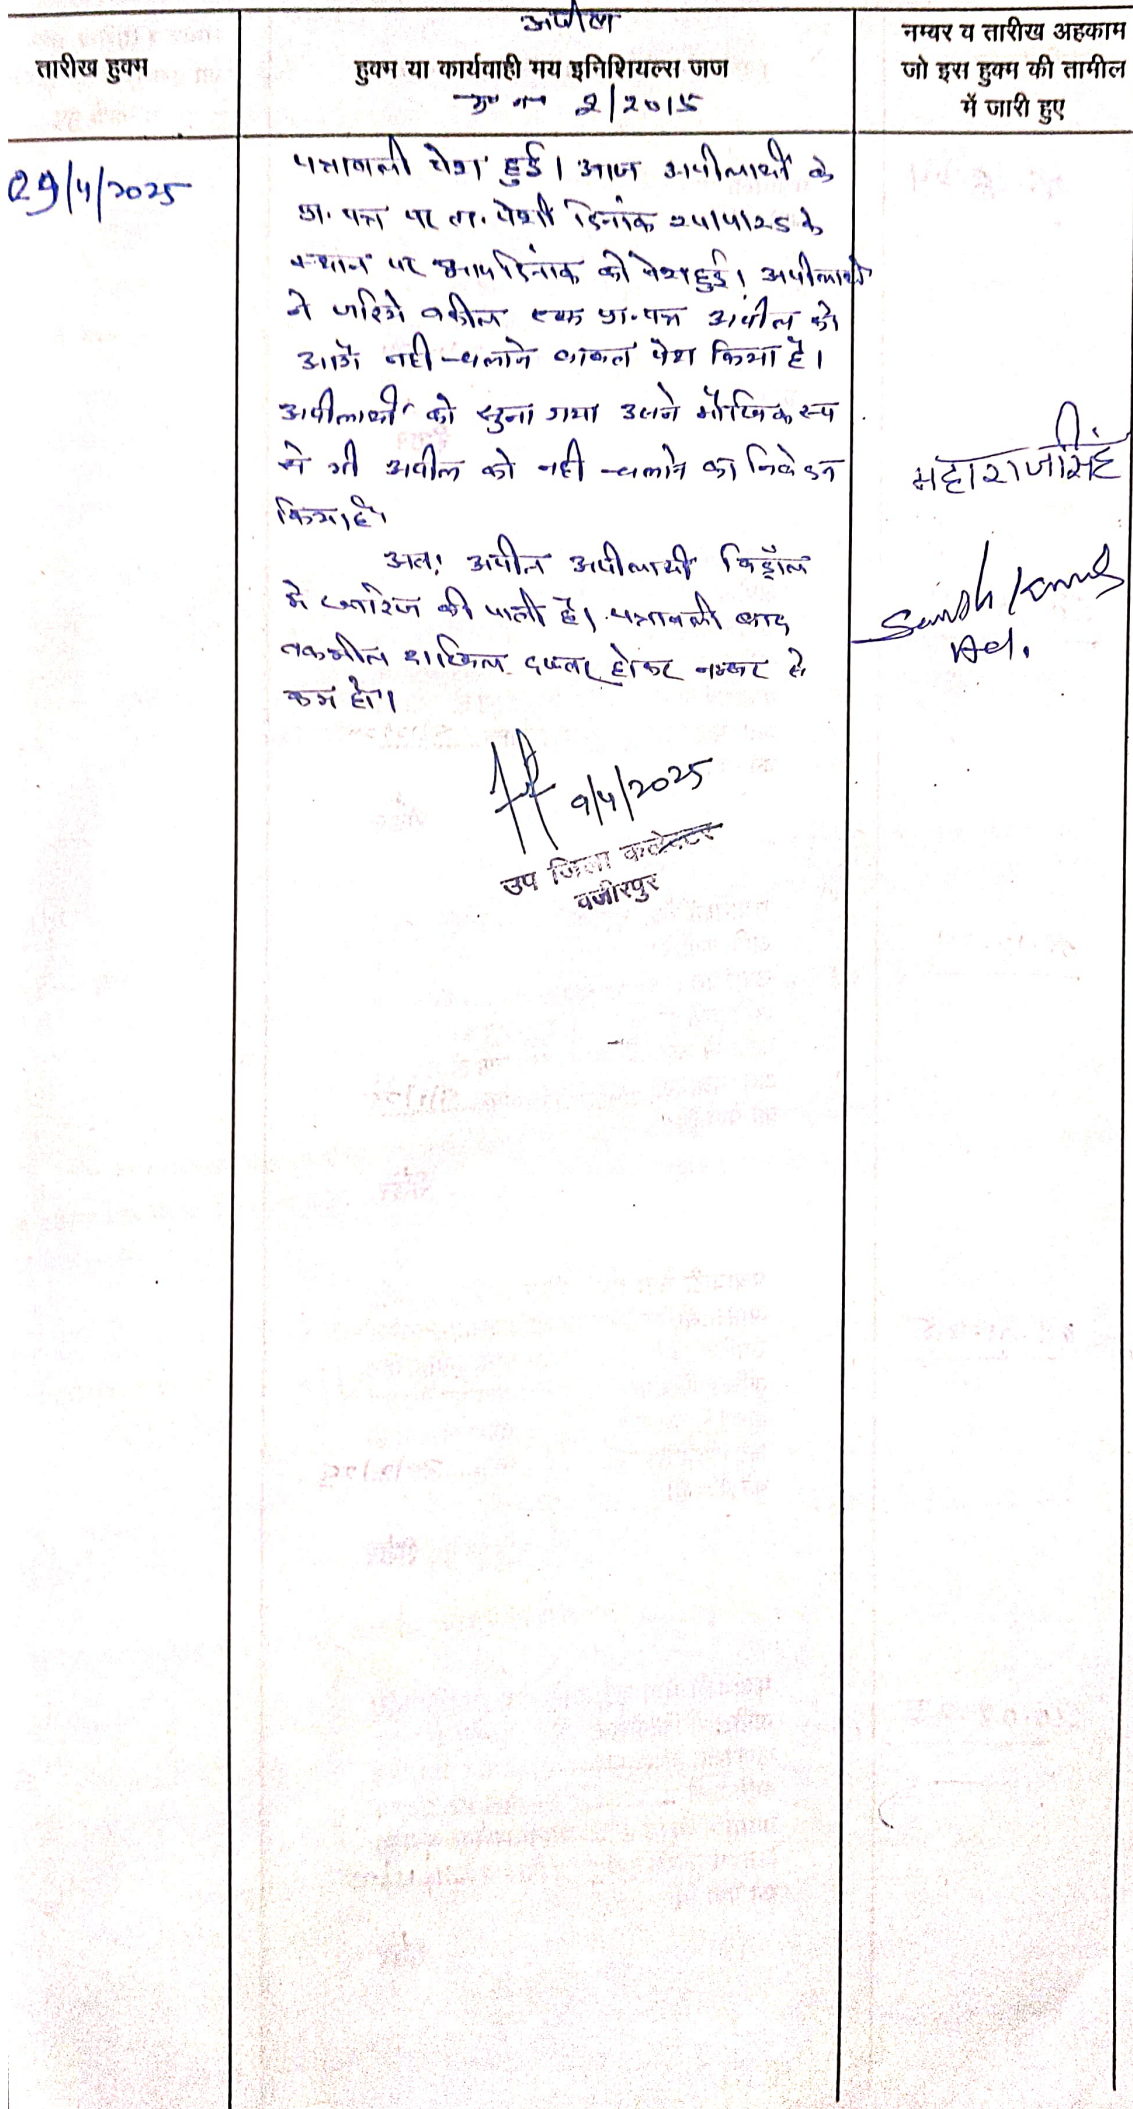 अपील
तारीख हुक्म
हुक्म या कार्यवाही मय इनिशियल्स जज
2/2015
नम्बर व तारीख अहकाम
जो इस हुक्म की तामील
में जारी हुए
29/4/2025
पत्रावली पेश हुई। आज अपीलार्थी के
प्रा. पत्र पर ता. पेशी दिनांक 24/4/25 के
स्थान पर आज दिनांक को पेश हुई। अपीलार्थी
ने जरिये वकील एक प्रा. पत्र अपील को
आगे नही चलाने बाबत पेश किया है।
अपीलार्थी को सुना गया उसने मौखिक रूप
से भी अपील को नही चलाने का निवेदन
किया है।
अतः अपील अपीलार्थी विड्रॉल
मे खारिज की जाती है। पत्रावली बाद
तकमील दाखिल दफ्तर होकर नम्बर से
कम हो।
महाराजसिंह
Adv.
9/4/2025
उप जिला कलेक्टर
वजीरपुर